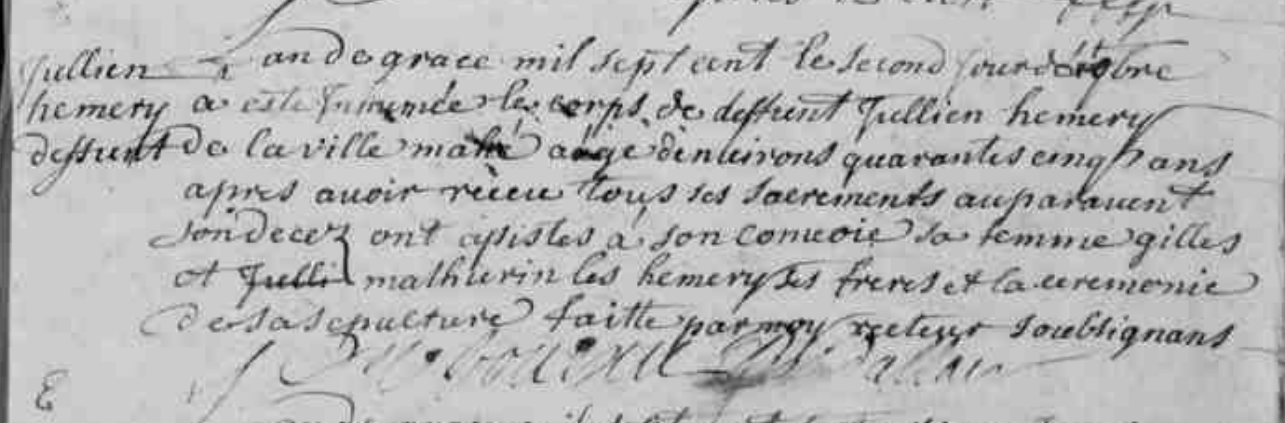 Jullien L an de grace mil sept cent le second jour d'octobre
hemery a esté Inhumée le corps de deffunt Jullien hemery
deffunt de la ville mahé aagé d'enuirons quarantes cinq ans
apres auoir réceu tous ses sacrements auparauent
son decez ont assistes a son conuoie sa femme gilles
et Julli mathurin les hemery ses freres et la ceremonie
de sa sepulture faitte par moy recteur soubsignans